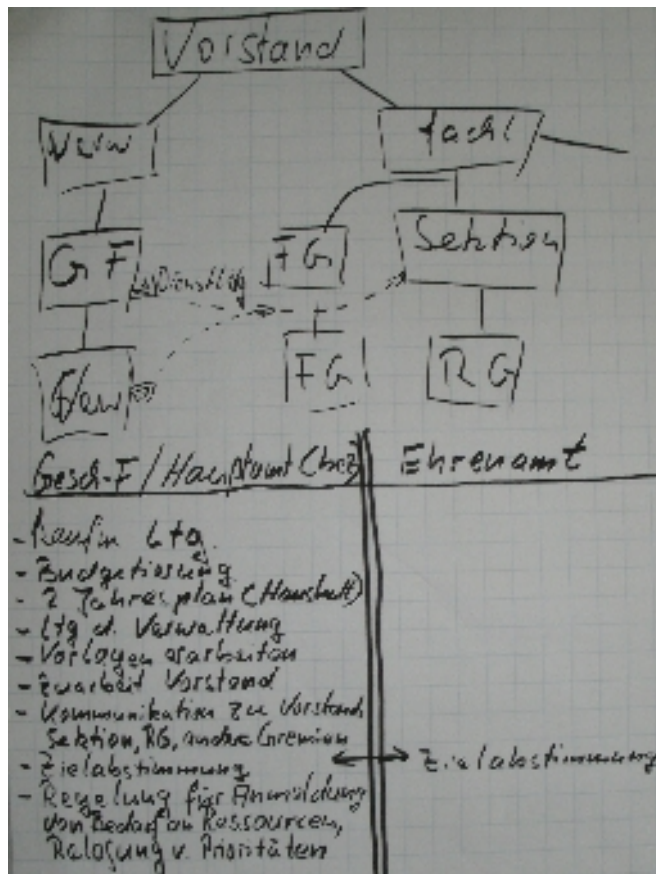 Vorstand
Verw
fachl
GF
FG
Sektion
FG
RG
Gesch-F / Hauptamt (bez)
Ehrenamt
- Kaufm Ltg.
- Budgetierung
- 2 Jahresplan (Haushalt)
- Ltg d. Verwaltung
- Vorlagen erarbeiten
- Zuarbeit Vorstand
- Kommunikation zu Vorstand
Sektion, RG, andere Gremien
- Zielabstimmung
Zielabstimmung
- Regelung für Anmeldung
von Bedarf an Ressourcen,
v. Prioritäten